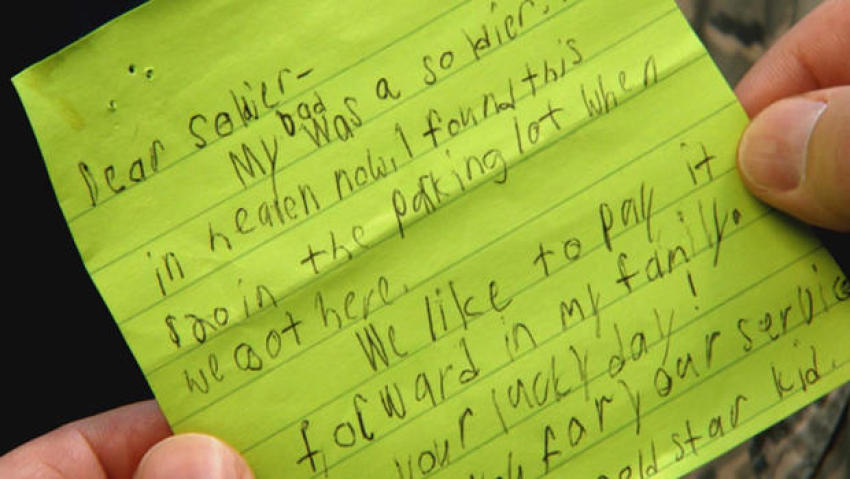 Dear Soldier-
My Dad was a soldier.
in heaven now. I found this
$20 in the parking lot when
we got here.
We like to pay it
forward in my family.
your lucky day!
for your servic
old star kid.